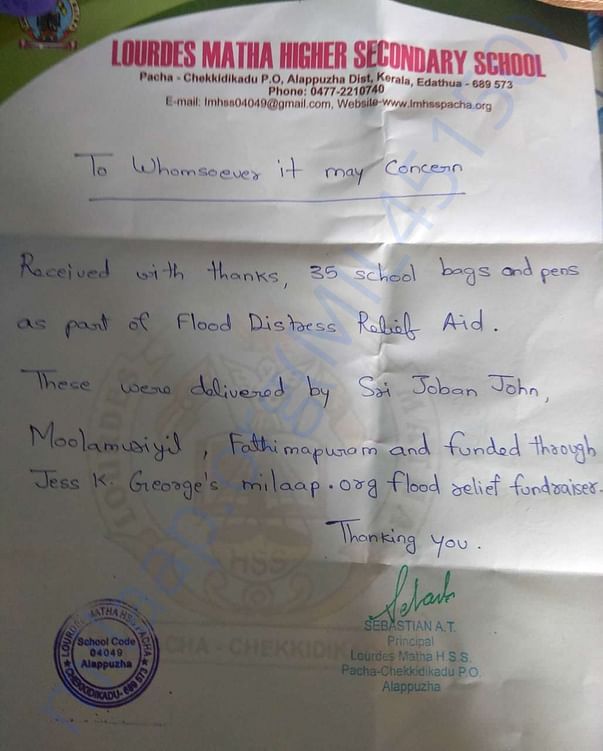 LOURDES MATHA HIGHER SECONDARY SCHOOL
Pacha - Chekkidikadu P.O, Alappuzha Dist, Kerala, Edathua - 689 573
Phone: 0477-2210740
E-mail: lmhss04049@gmail.com, Website-www.lmhsspacha.org
To Whomsoever it may Concern
Received with thanks, 35 school bags and pens
as part of Flood Distress Relief Aid.
These were delivered by Sri Joban John,
Moolamuriyil, Fathimapuram and funded through
Jess K. George's milaap.org flood relief fundraiser.
Thanking you.
SEBASTIAN A.T.
Principal
Lourdes Matha H.S.S.
Pacha-Chekkidikadu P.O.
Alappuzha
LOURDES MATHA HSS PACHA
School Code
04049
Alappuzha
CHEKKIDIKADU- 689 573
HSS
PACHA - CHEKKIDIK